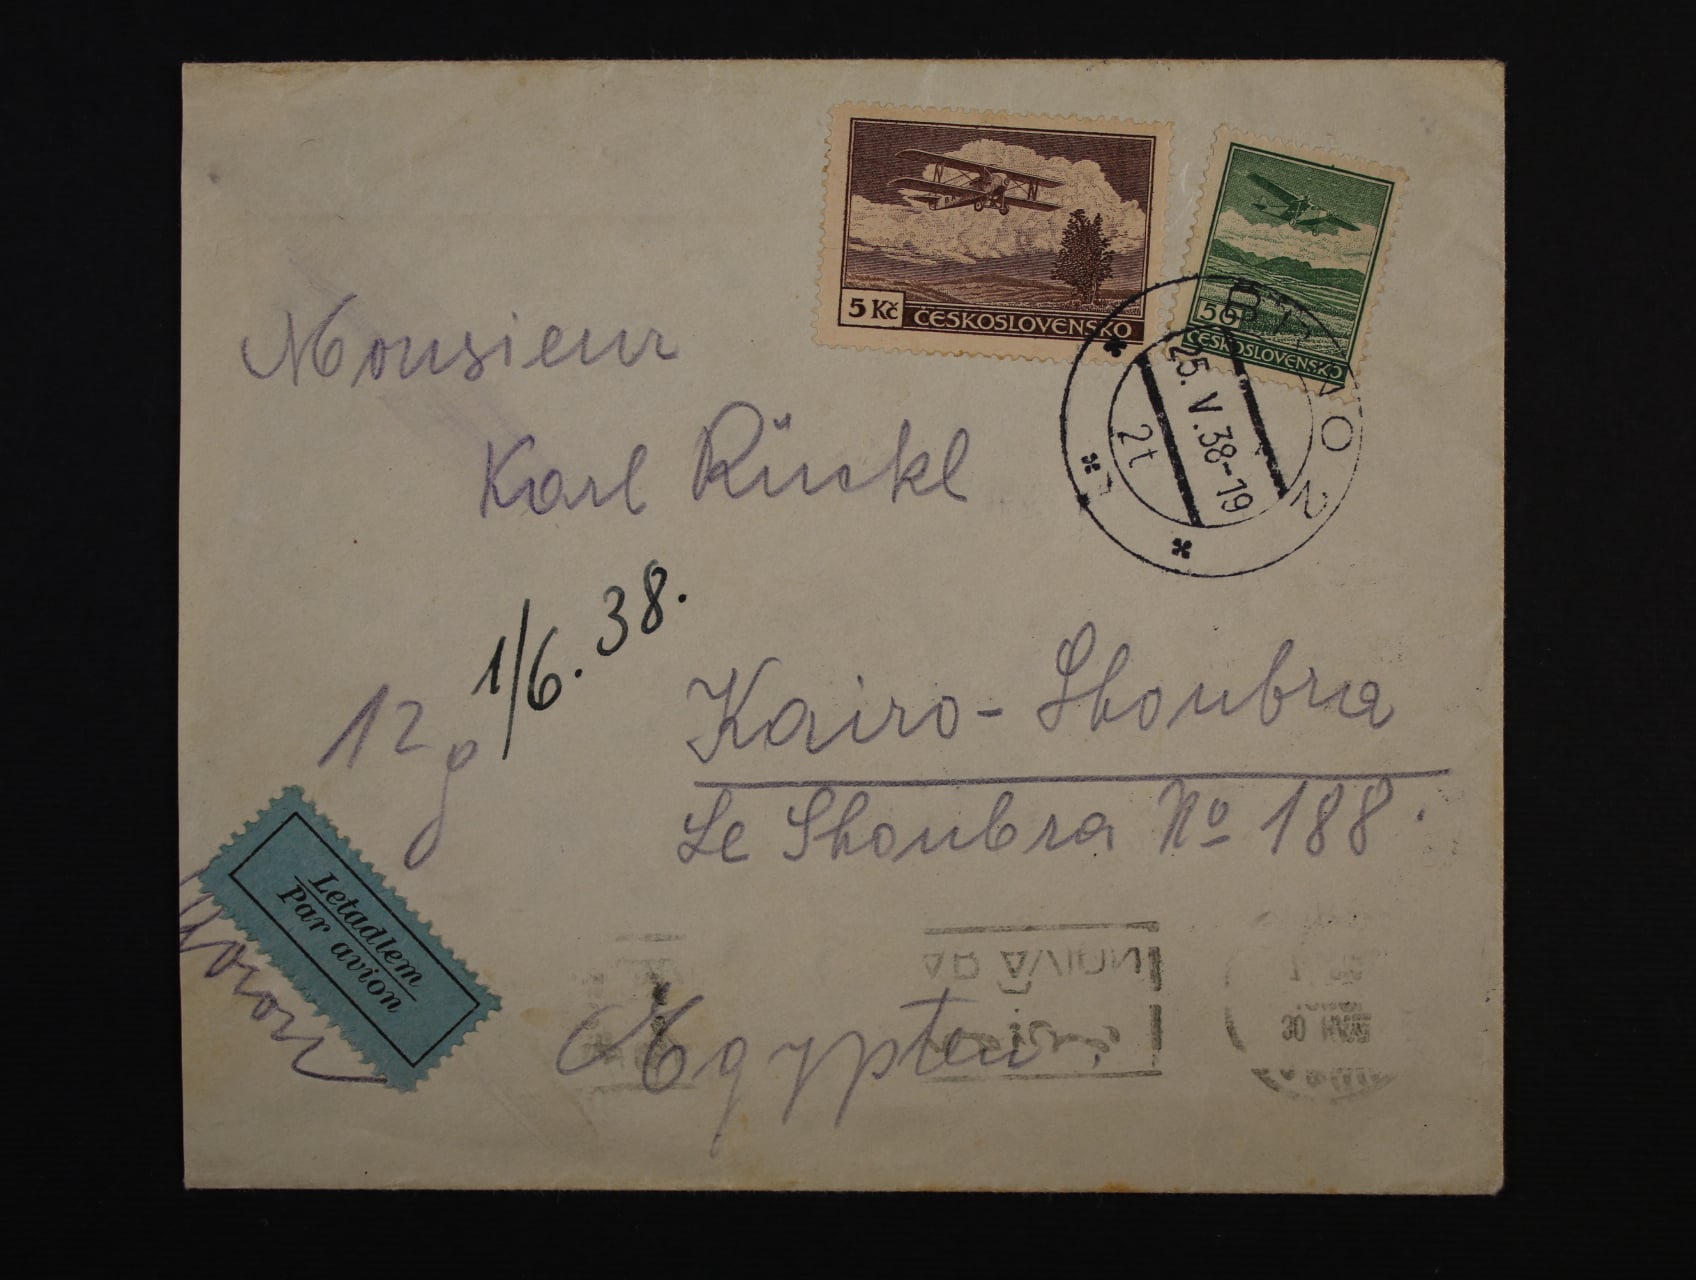 5 Kč ČESKOSLOVENSKO
50 ČESKOSLOVENSKO
BRNO 2
25. V. 38-19
2t
Monsieur
Karl Rückl
1/6. 38.
12 g
Kairo - Shoubra
Le Shoubra No 188.
Letadlem
Par avion
Egypten
AVION
30